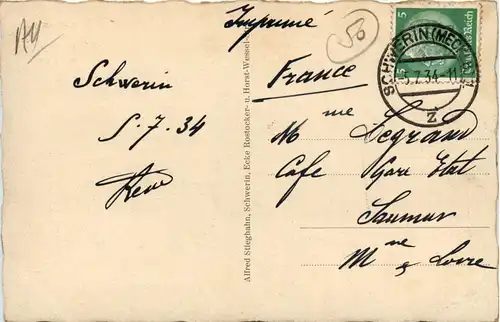 Imprimé
50
France
Schwerin
5-7-34
Mme Legrand
Café Gare Etat
Saumur
Mne & Loire
Alfred Stieghahn, Schwerin, Ecke Rostocker- u. Horst-Wessel-
5 5
Deutsches Reich
SCHWERIN (MECKL) 1
-5.7.34.11
z